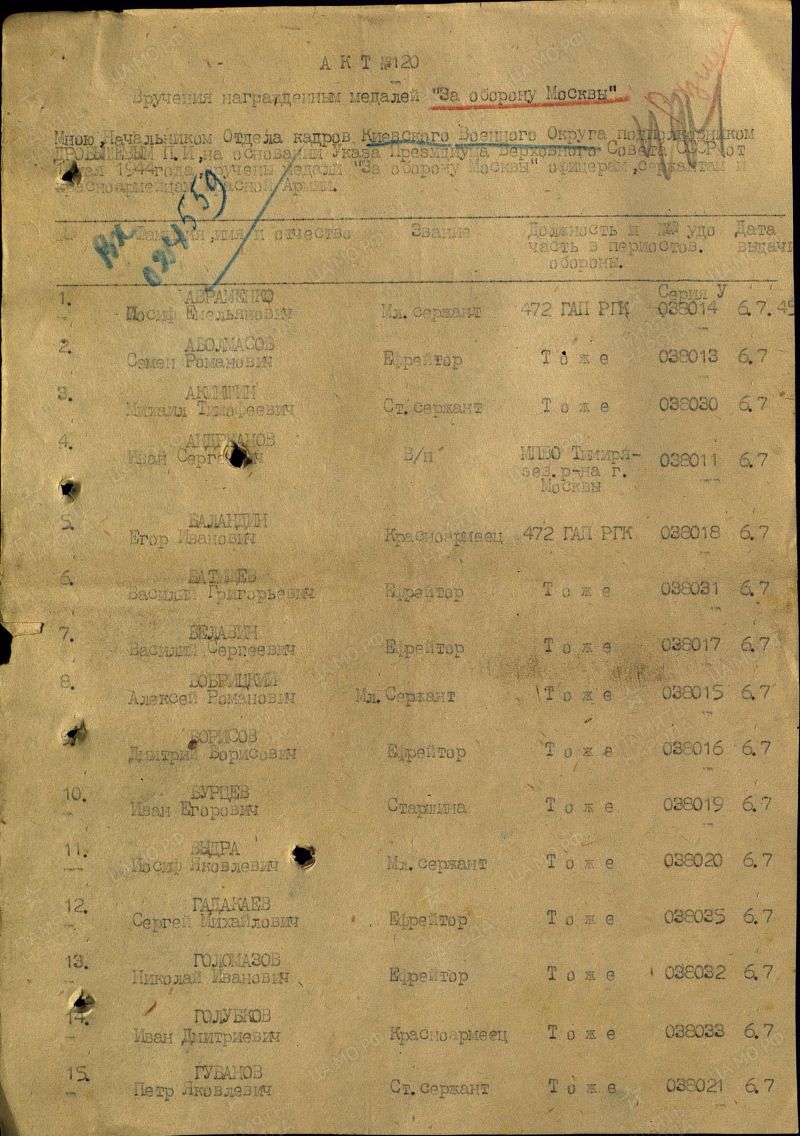 А К Т №120
Вручения награжденным медалей "За оборону Москвы"
Мною, Начальником Отдела кадров Киевского Военного Округа подполковником
ДРОБЫШЕВЫМ П.И, на основании Указа Президиума Верховного Совета СССР от
мая 1944 года, вручены медали "За оборону Москвы" офицерам, сержантам и
красноармейцам Красной Армии.
Вх
024559
Фамилия, имя и отчество Звание Должность и часть в период обороны. №№ удостов. Дата выдачи
Серия У
1. АВРАМЕНКО
Иосиф Емельянович Мл. сержант 472 ГАП РГК 038014 6.7.45
2. АБОЛМАСОВ
Семен Романович Ефрейтор Т о ж е 038013 6.7
3. АКИНШИН
Михаил Тимофеевич Ст. сержант Т о ж е 038030 6.7
4. АНДРИАНОВ
Иван Сергеевич В/н МПВО Тимиря-
зев. р-на г.
Москвы 038011 6.7
5. БАЛАНДИН
Егор Иванович Красноармеец 472 ГАП РГК 038018 6.7
6. БАТИЩЕВ
Василий Григорьевич Ефрейтор Т о ж е 038031 6.7
7. БЕЛАВИН
Василий Сергеевич Ефрейтор Т о ж е 038017 6.7
8. БОБРИЦКИЙ
Алексей Романович Мл. Сержант Т о ж е 038015 6.7
9. БОРИСОВ
Дмитрий Борисович Ефрейтор Т о ж е 038016 6.7
10. БУРЦЕВ
Иван Егорович Старшина Т о ж е 038019 6.7
11. ВЫДРА
Иосиф Яковлевич Мл. сержант Т о ж е 038020 6.7
12. ГАДАКАЕВ
Сергей Михайлович Ефрейтор Т о ж е 038035 6.7
13. ГОЛОМАЗОВ
Николай Иванович Ефрейтор Т о ж е 038032 6.7
14. ГОЛУБКОВ
Иван Дмитриевич Красноармеец Т о ж е 038033 6.7
15. ГУБАНОВ
Петр Яковлевич Ст. сержант Т о ж е 038021 6.7